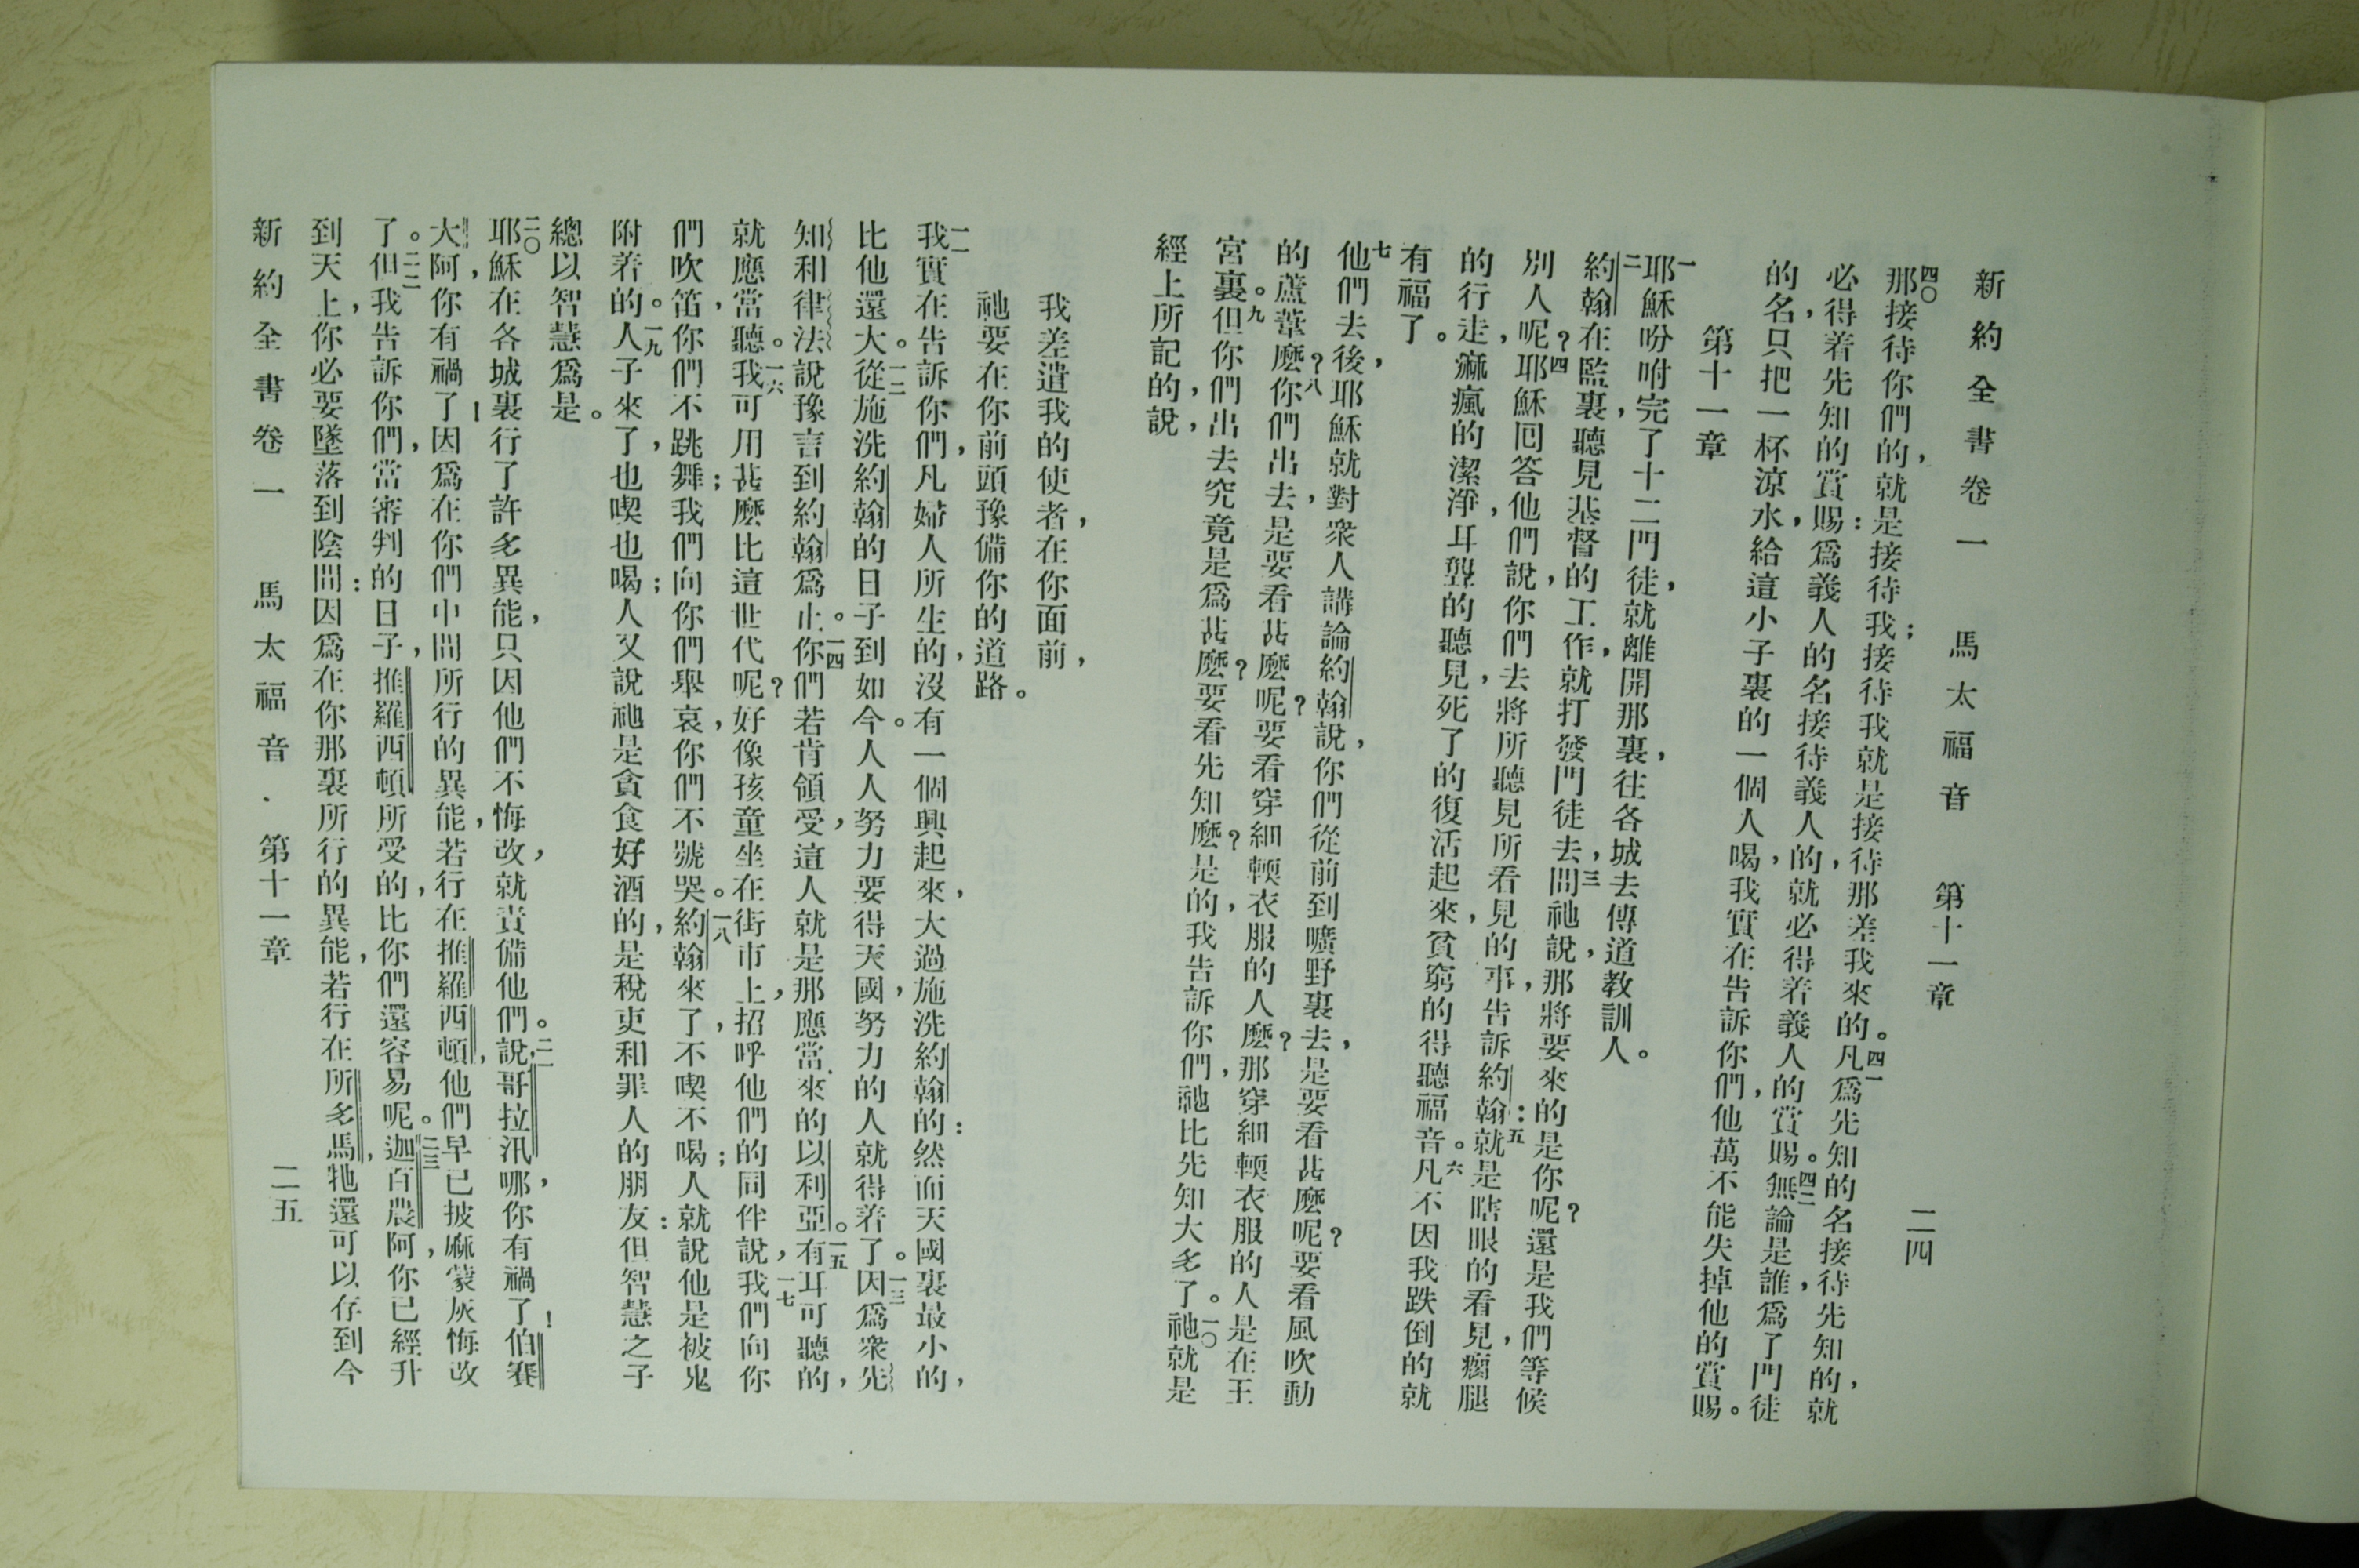 新約全書卷一 馬太福音 第十一章 二四
四〇那接待你們的，就是接待我；接待我就是接待那差我來的。四一凡爲先知的名接待先知的，就
必得着先知的賞賜：爲義人的名接待義人的，就必得着義人的賞賜。四二無論是誰，爲了門徒
的名，只把一杯涼水，給這小子裏的一個人喝，我實在告訴你們，他萬不能失掉他的賞賜。
第十一章
一耶穌吩咐完了十二門徒，就離開那裏，往各城去傳道教訓人。
二約翰在監裏，聽見基督的工作，就打發門徒去，三問祂說，那將要來的是你呢？還是我們等候
別人呢？四耶穌囘答他們說，你們去將所聽見所看見的事，告訴約翰：五就是瞎眼的看見，瘸腿
的行走，痲瘋的潔淨，耳聾的聽見，死了的復活起來，貧窮的得聽福音。六凡不因我跌倒的就
有福了。
七他們去後，耶穌就對衆人講論約翰說，你們從前到曠野裏去，是要看甚麼呢？要看風吹動
的蘆葦麼？八你們出去，是要看甚麼呢？要看穿細輭衣服的人麼？那穿細輭衣服的人是在王
宮裏。九但你們出去究竟是爲甚麼？要看先知麼？是的，我告訴你們，祂比先知大多了。一〇祂就是
經上所記的，說，
我差遣我的使者，在你面前，
祂要在你前頭豫備你的道路。
一一我實在告訴你們，凡婦人所生的，沒有一個興起來，大過施洗約翰的：然而天國裏最小的，
比他還大。一二從施洗約翰的日子到如今。人人努力要得天國，努力的人就得着了。一三因爲衆先
知和律法說豫言到約翰爲止。一四你們若肯領受，這人就是那應當來的以利亞。一五有耳可聽的，
就應當聽。一六我可用甚麼比這世代呢？好像孩童坐在街市上，招呼他們的同伴說，一七我們向你
們吹笛，你們不跳舞；我們向你們舉哀，你們不號哭。一八約翰來了，不喫不喝；人就說他是被鬼
附着的。一九人子來了，也喫也喝；人又說祂是貪食好酒的，是稅吏和罪人的朋友：但智慧之子
總以智慧爲是。
二〇耶穌在各城裏行了許多異能，只因他們不悔改，就責備他們。二一說，哥拉汛哪，你有禍了！伯賽
大阿，你有禍了！因爲在你們中間所行的異能，若行在推羅西頓，他們早已披麻蒙灰悔改
了。二二但我告訴你們，當審判的日子，推羅西頓所受的，比你們還容易呢。二三迦百農阿，你已經升
到天上，你必要墜落到陰間：因爲在你那裏所行的異能，若行在所多馬，牠還可以存到今
新約全書卷一 馬太福音．第十一章 二五